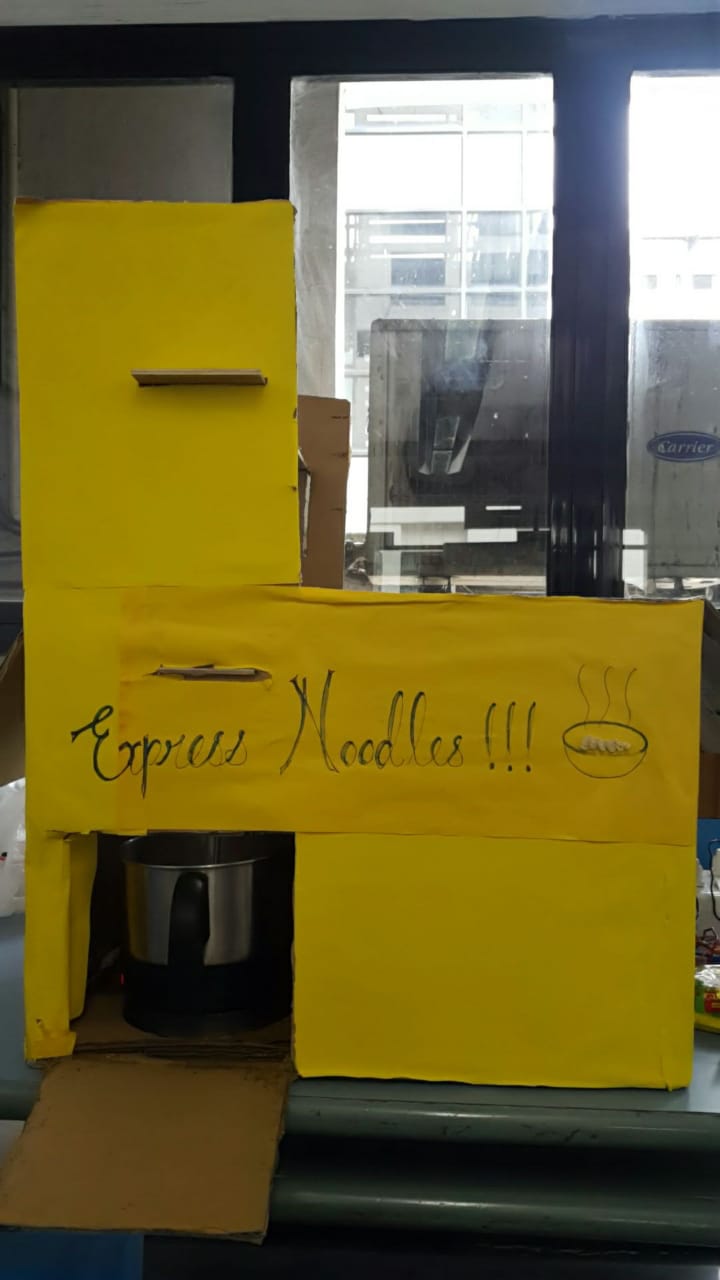 Carrier
Express Noodles !!!